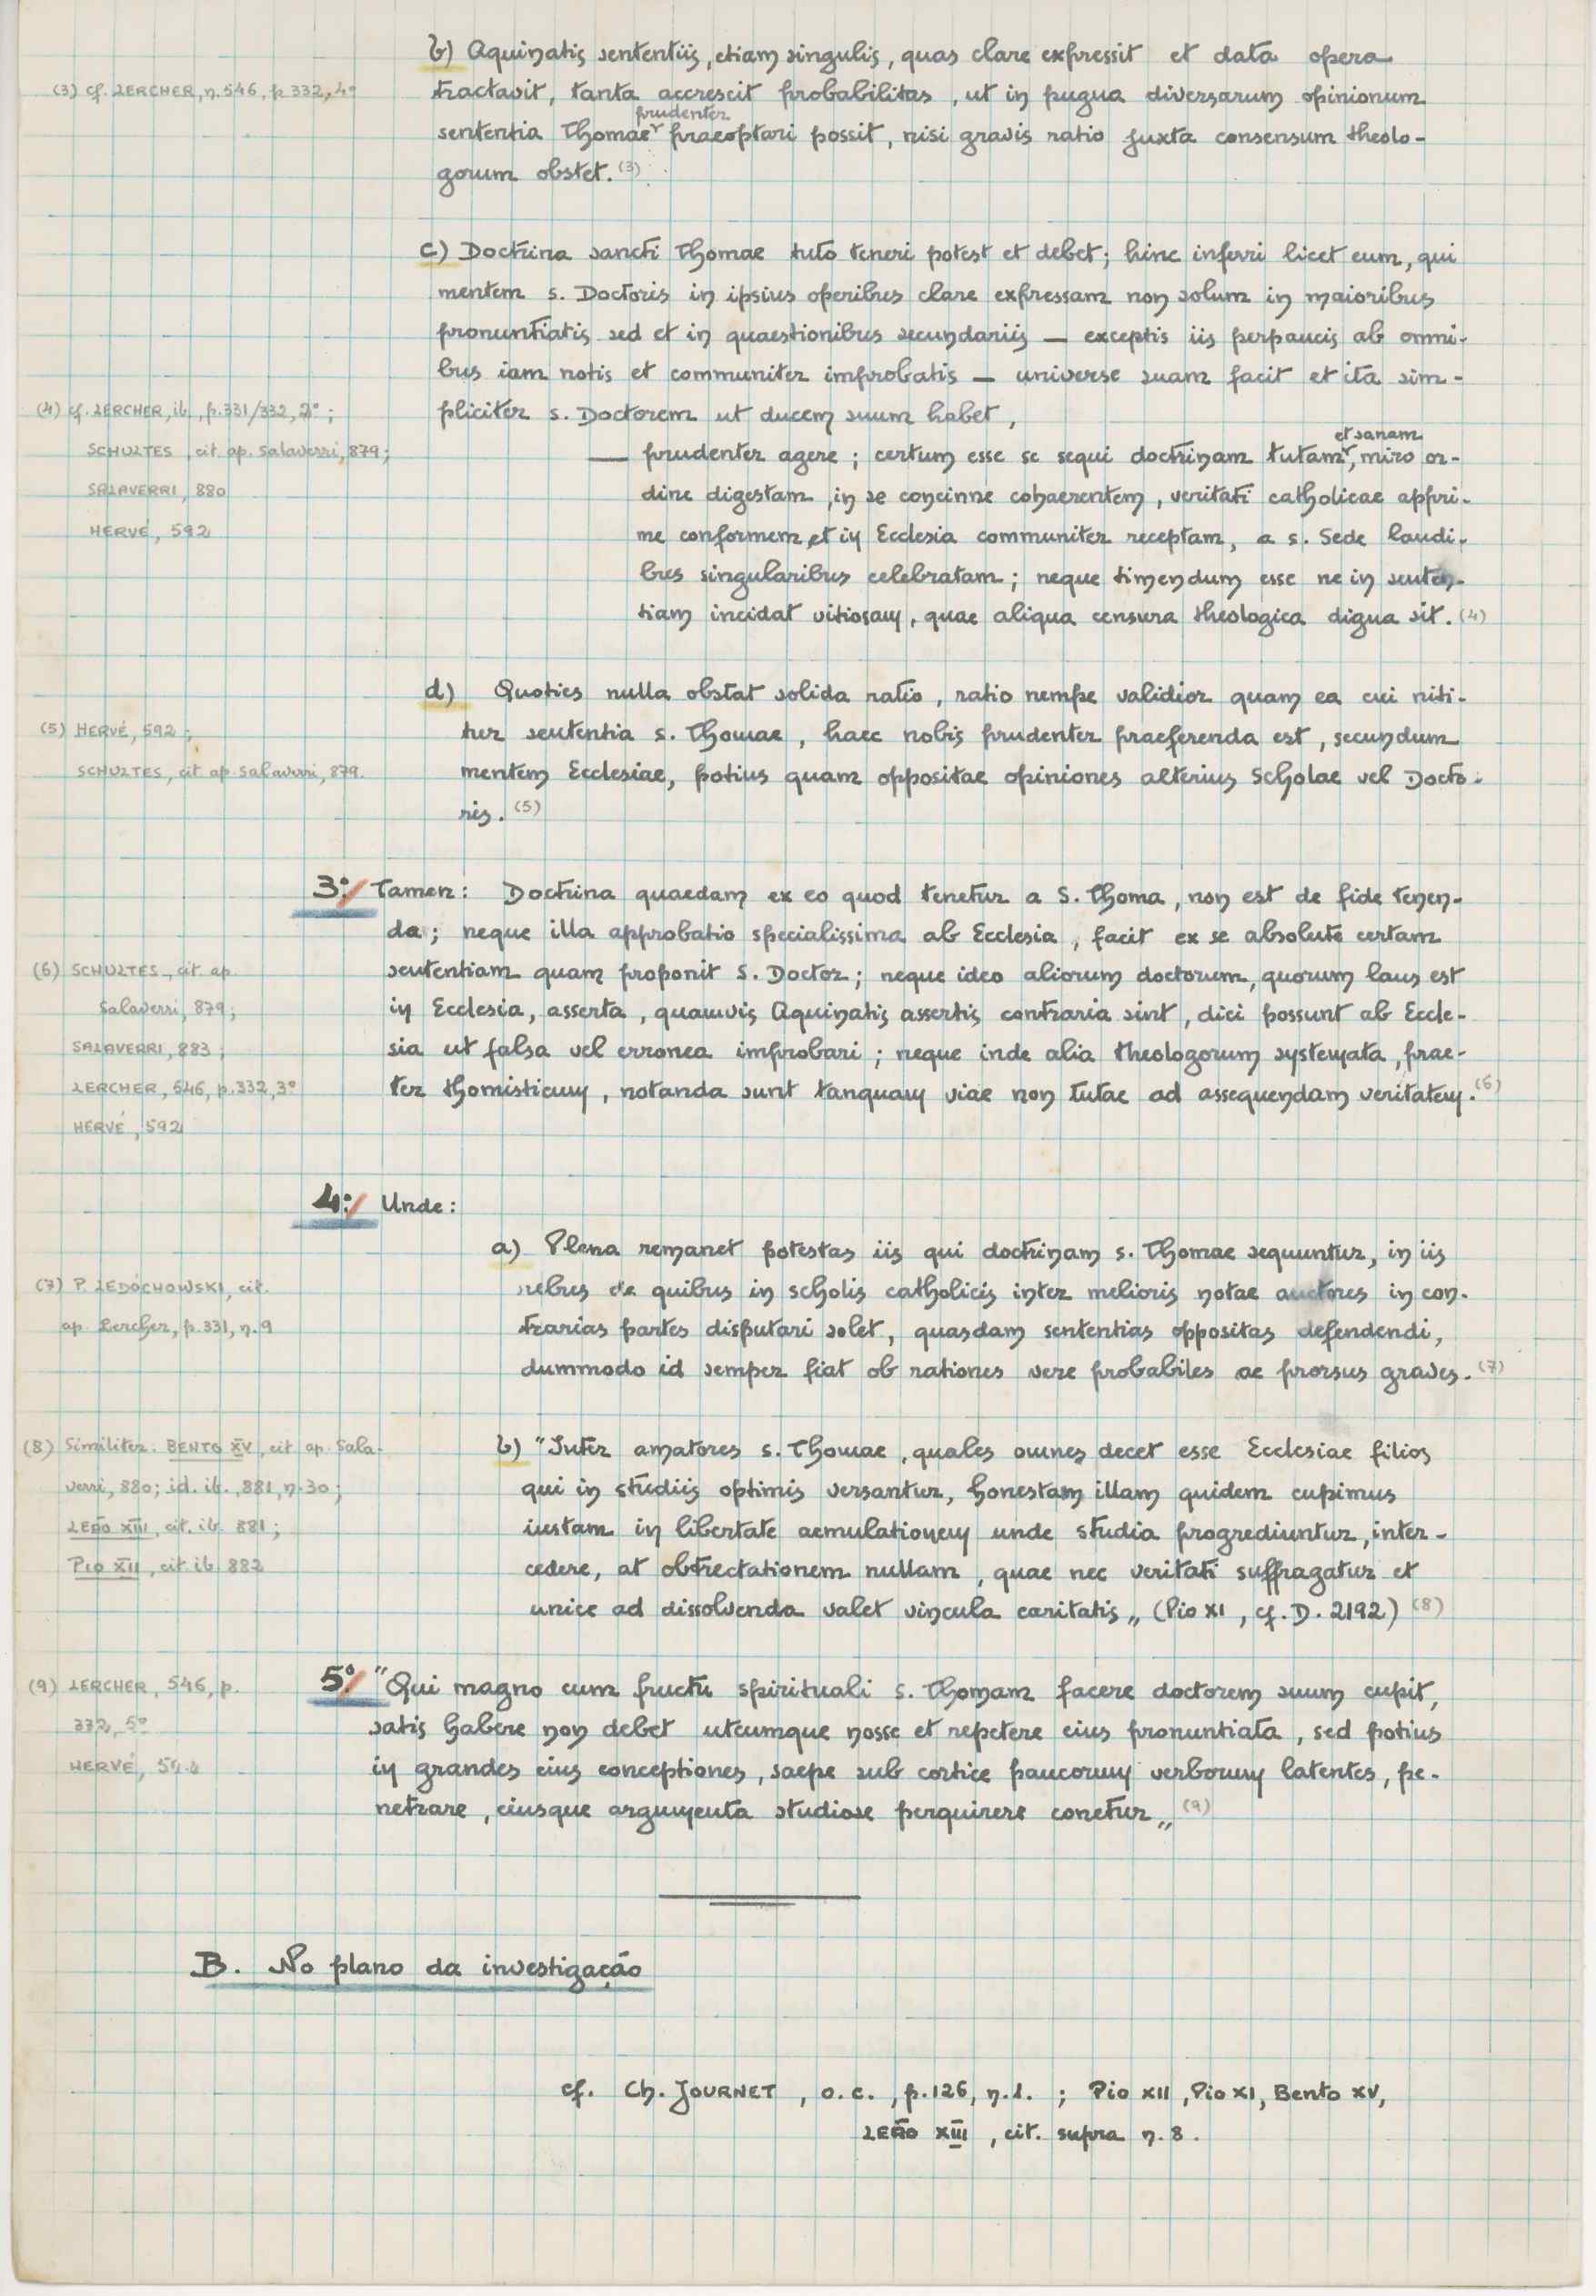 b) Aquinatis sententiis, etiam singulis, quas clare expressit et data opera
(3) cf. LERCHER, n. 546, p. 332, 4º
tractavit, tanta accrescit probabilitas, ut in pugna diversarum opinionum
prudenter
sententia Thomae praeoptari possit, nisi gravis ratio juxta consensum theolo-
gorum obstet. (3)
c) Doctrina sancti Thomae tuto teneri potest et debet; hinc inferri licet eum, qui
mentem s. Doctoris in ipsius operibus clare expressam non solum in maioribus
pronuntiatis sed et in quaestionibus secundariis — exceptis iis perpaucis ab omni-
bus iam notis et communiter improbatis — universe suam facit et ita sim-
(4) cf. LERCHER, ib., p. 331/332, 2º;
pliciter s. Doctorem ut ducem suum habet,
et sanam
SCHULTES, cit. ap. Salaverri, 879;
— prudenter agere; certum esse se sequi doctrinam tutam, miro or-
SALAVERRI, 880
dine digestam, in se concinne cohaerentem, veritati catholicae appri-
HERVÉ, 592
me conformem et in Ecclesia communiter receptam, a s. Sede laudi-
bus singularibus celebratam; neque timendum esse ne in senten-
tiam incidat vitiosam, quae aliqua censura theologica digna sit. (4)
d) Quoties nulla obstat solida ratio, ratio nempe validior quam ea cui niti-
(5) HERVÉ, 592;
tur sententia s. Thomae, haec nobis prudenter praeferenda est, secundum
SCHULTES, cit. ap. Salaverri, 879.
mentem Ecclesiae, potius quam oppositae opiniones alterius Scholae vel Docto-
ris. (5)
3º/ Tamen: Doctrina quaedam ex eo quod tenetur a S. Thoma, non est de fide tenen-
da; neque illa approbatio specialissima ab Ecclesia, facit ex se absolute certam
(6) SCHULTES, cit. ap.
sententiam quam proponit S. Doctor; neque ideo aliorum doctorum, quorum laus est
Salaverri, 879;
in Ecclesia, asserta, quamvis Aquinatis assertis contraria sint, dici possunt ab Eccle-
SALAVERRI, 883;
sia ut falsa vel erronea improbari; neque inde alia theologorum systemata, prae-
LERCHER, 546, p. 332, 3º
ter thomisticum, notanda sunt tanquam viae non tutae ad assequendam veritatem. (6)
HERVÉ, 592
4º/ Unde:
a) Plena remanet potestas iis qui doctrinam s. Thomae sequuntur, in iis
(7) P. LEDÓCHOWSKI, cit.
rebus de quibus in scholis catholicis inter melioris notae auctores in con-
ap. Lercher, p. 331, n. 9
trarias partes disputari solet, quasdam sententias oppositas defendendi,
dummodo id semper fiat ob rationes vere probabiles ac prorsus graves. (7)
(8) Similiter: BENTO XV, cit. ap. Sala-
b) "Inter amatores s. Thomae, quales omnes decet esse Ecclesiae filios
verri, 880; id. ib., 881, n. 30;
qui in studiis optimis versantur, honestam illam quidem cupimus
LEÃO XIII, cit. ib. 881;
iustam in libertate aemulationem unde studia progrediuntur, inter-
PIO XII, cit. ib. 882
cedere, at obtrectationem nullam, quae nec veritati suffragatur et
unice ad dissolvenda valet vincula caritatis„ (Pio XI, cf. D. 2192) (8)
(9) LERCHER, 546, p.
5º/ "Qui magno cum fructu spirituali s. Thomam facere doctorem suum cupit,
332, 5º
satis habere non debet utcumque nosse et repetere eius pronuntiata, sed potius
HERVÉ,
in grandes eius conceptiones, saepe sub cortice paucorum verborum latentes, pe-
netrare, eiusque argumenta studiose perquirere conetur„ (9)
B. No plano da investigação
cf. Ch. JOURNET, o.c., p. 126, n. 1. ; Pio XII, Pio XI, Bento XV,
LEÃO XIII, cit. supra n. 8.